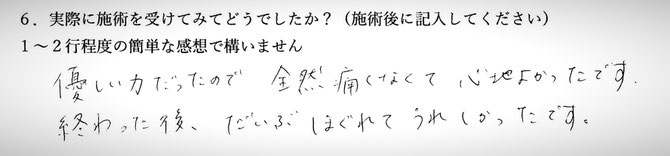 6．実際に施術を受けてみてどうでしたか？（施術後に記入してください）
1～2行程度の簡単な感想で構いません
優しい力だったので 全然痛くなくて 心地よかったです.
終わった後、だいぶほぐれてうれしかったです。